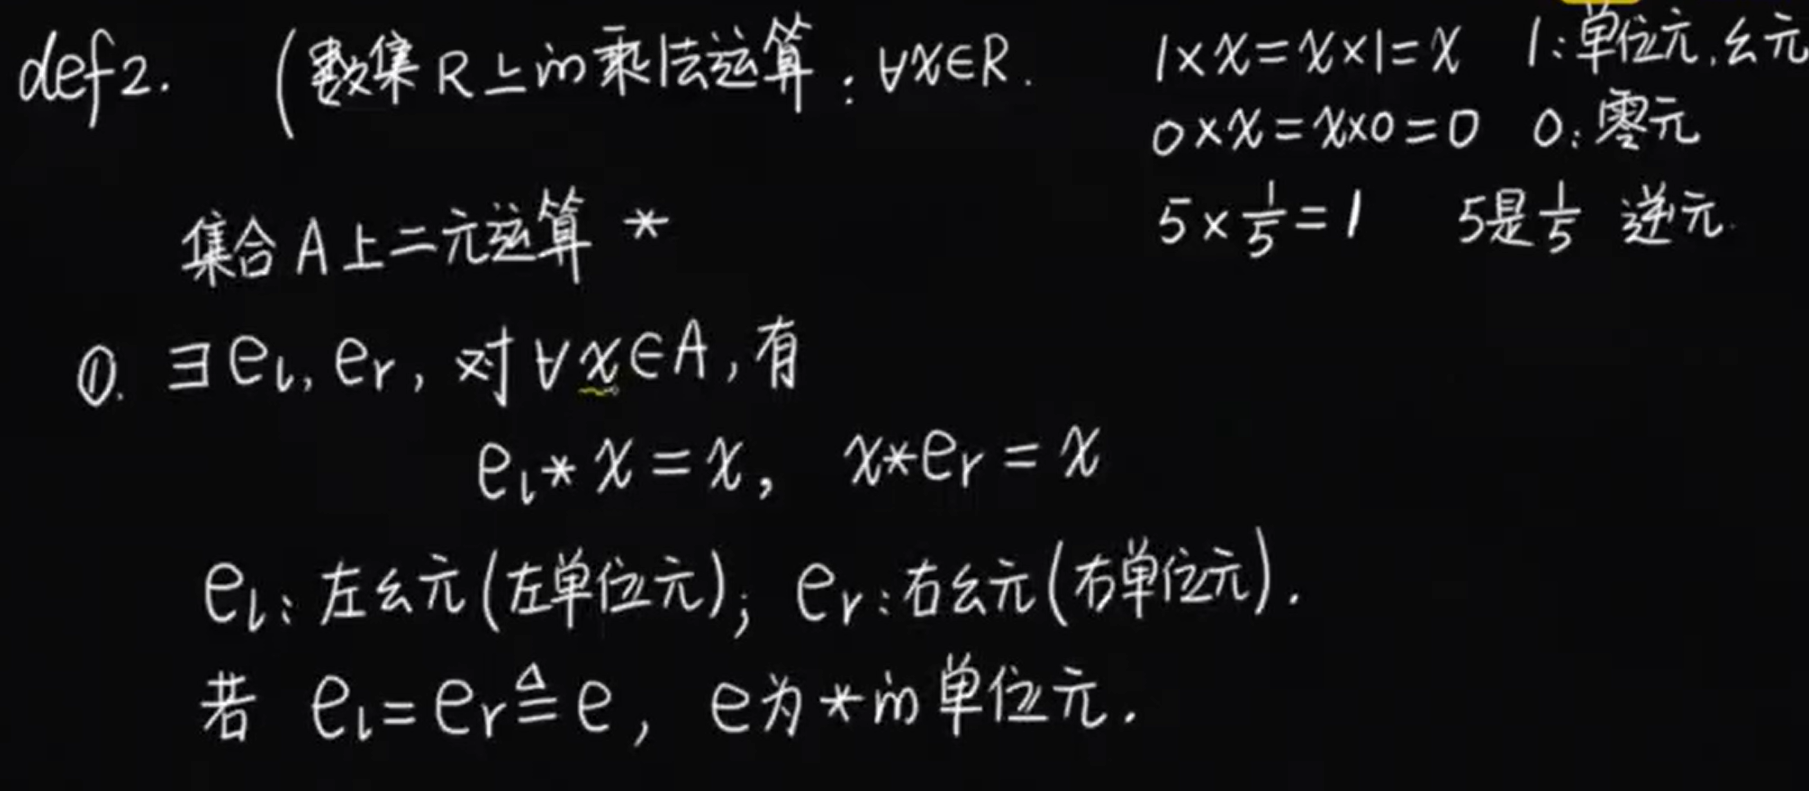 def2. (数集R上的乘法运算:∀x∈R. 1×x=x×1=x 1:单位元,幺元
0×x=x×0=0 0:零元
5×1/5=1 5是1/5 逆元.
集合A上二元运算 *
①. ∃ e_l, e_r, 对∀x∈A,有
e_l * x = x, x * e_r = x
e_l: 左幺元(左单位元); e_r: 右幺元(右单位元).
若 e_l = e_r ≜ e, e为*的单位元.